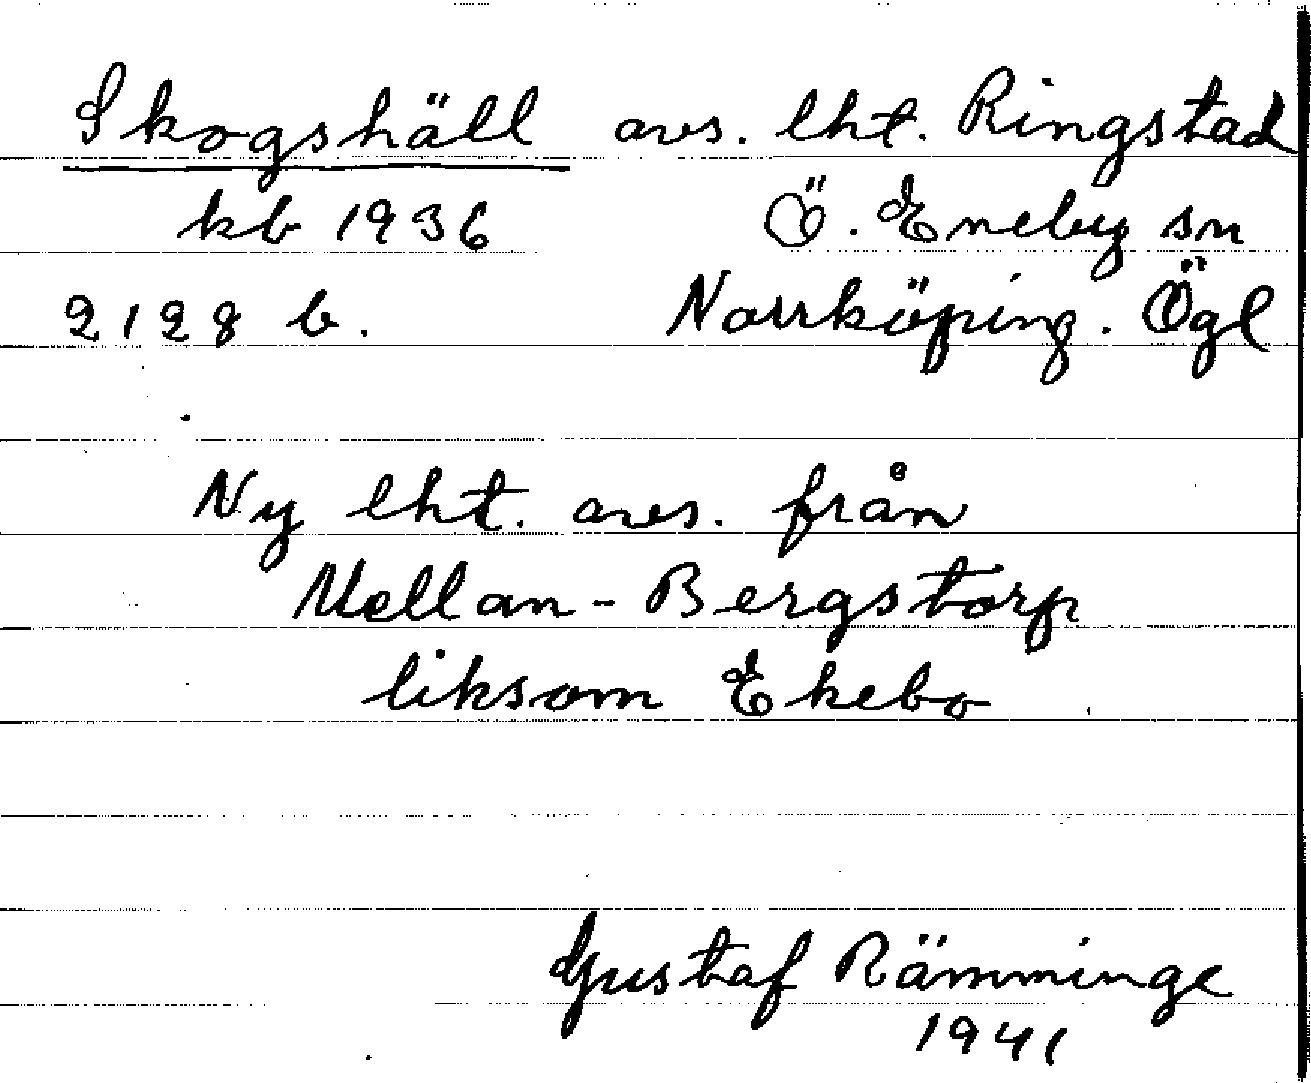 Skogshäll avs. lht. Ringstad
kb 1936 Ö. Eneby sn
2128 b. Norrköping. Ögl
Ny lht. avs. från
Mellan-Bergstorp
liksom Ekebo
Gustaf Rämminge
1941